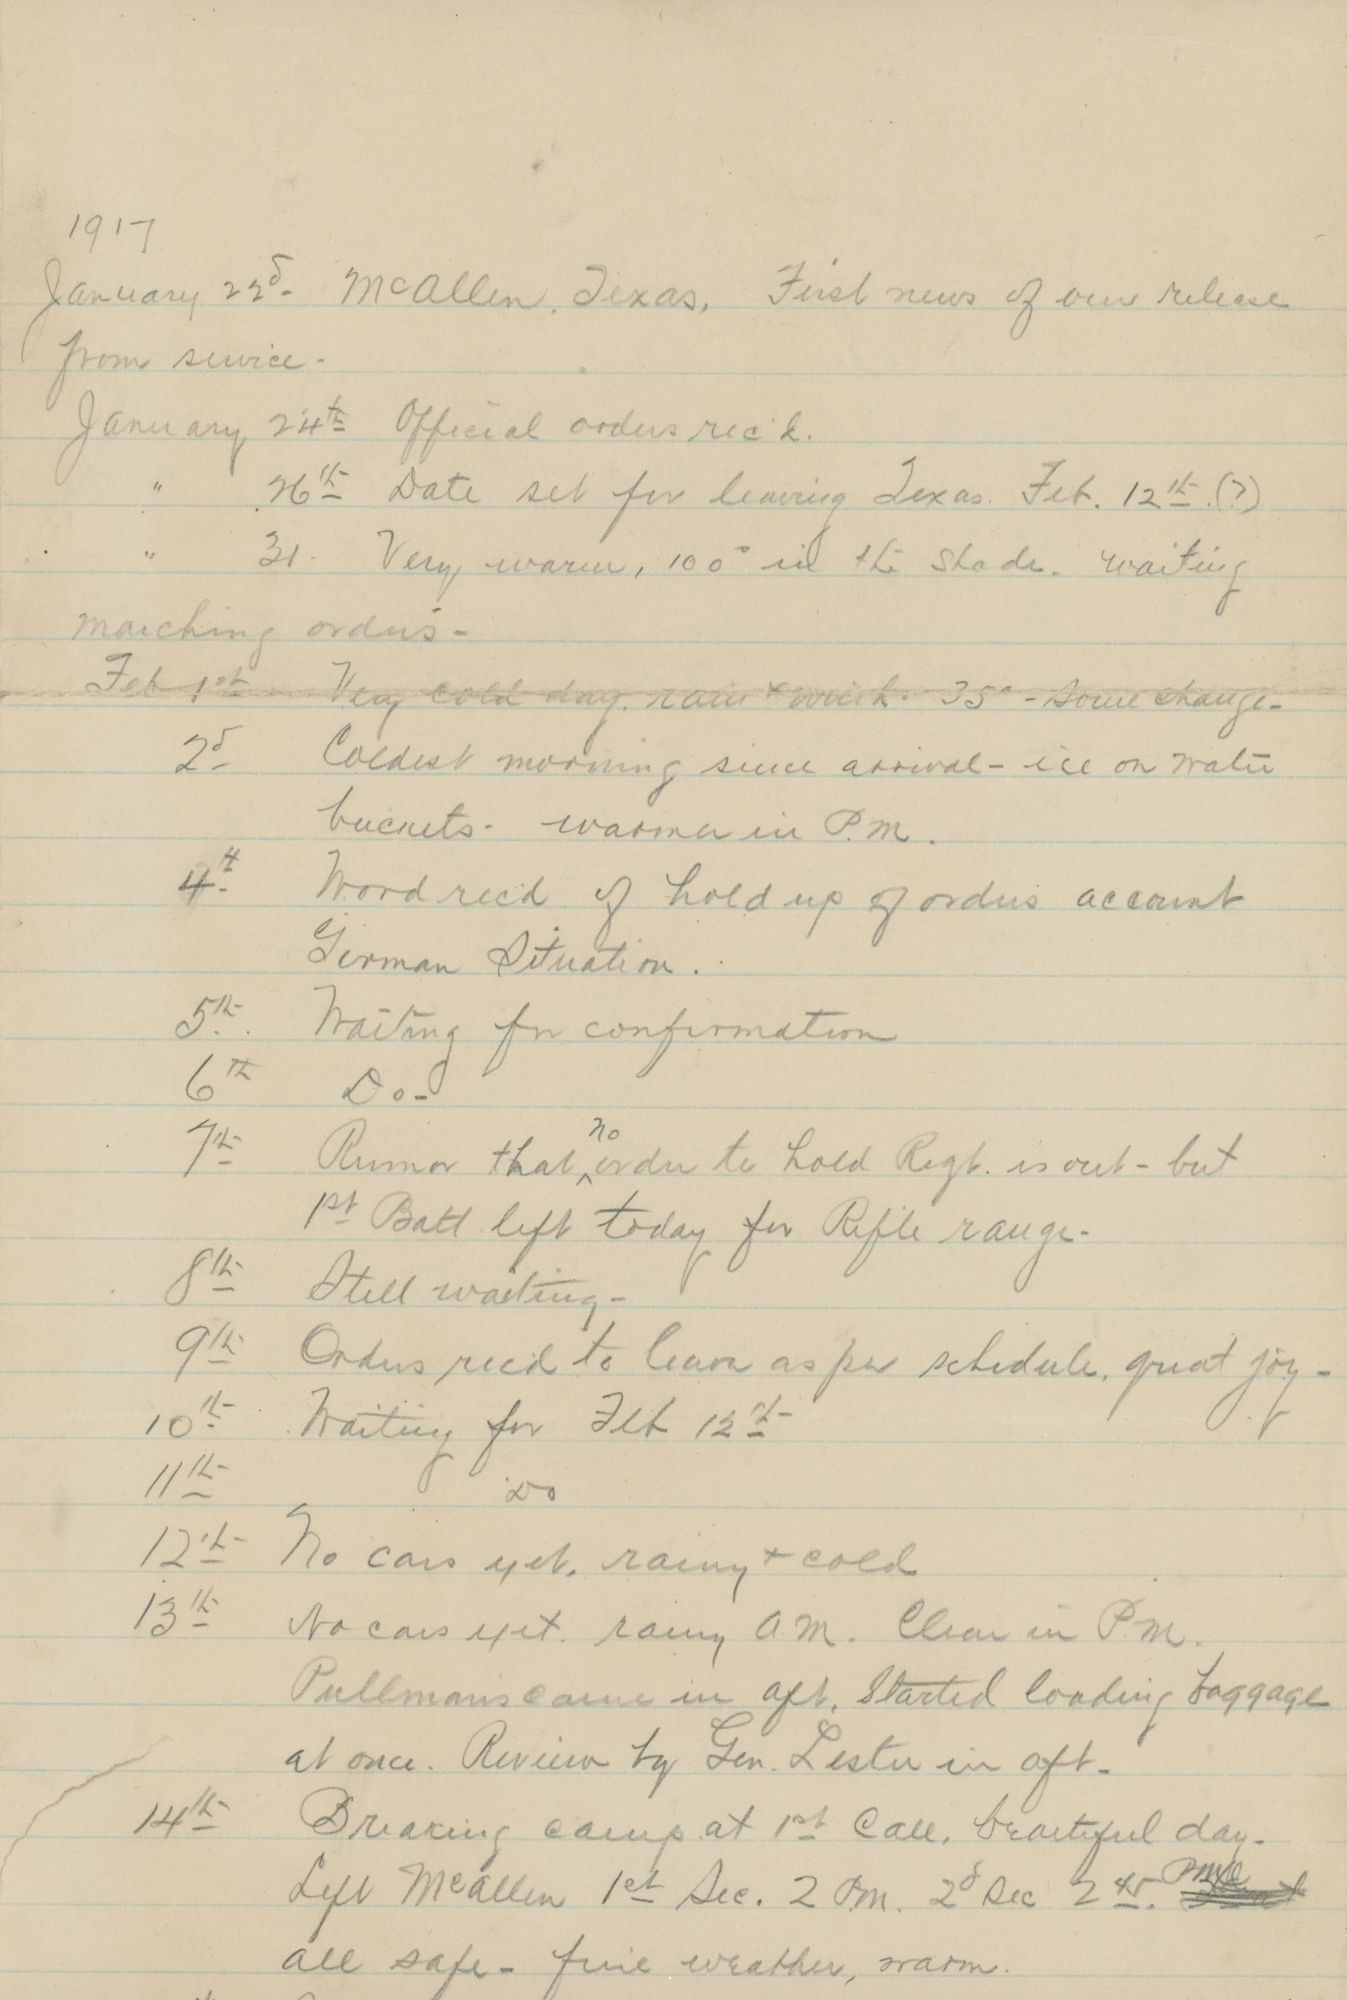 1917
January 22d- McAllen, Texas. First news of our release
from service-
January 24th Official orders rec'd.
" 26th Date set for leaving Texas. Feb. 12th.(?)
" 31- Very warm, 100° in the shade. waiting
marching orders-
Feb 1st Very cold day. rain + wind. 35° - some change-
2d- Coldest morning since arrival - ice on water
buckets- warmer in P.M.
4th Word rec'd of hold up of orders account
German Situation.
5th. Waiting for confirmation
6th Do-
7th Rumor that no order to hold Regt. is out - but
1st Batt left today for Rifle range-
8th Still waiting-
9th Orders rec'd to leave as per schedule. great joy-
10th Waiting for Feb 12th
11th Do
12th No cars yet. rainy + cold
13th No cars yet. rainy A.M. Clear in P.M.
Pullmans came in aft. Started loading baggage
at once. Review by Gen. Lester in aft-
14th Breaking camp at 1st Call. beautiful day-
Left McAllen 1st Sec. 2 P.M. 2d Sec 2 45. P.M.
all safe- fine weather, warm.